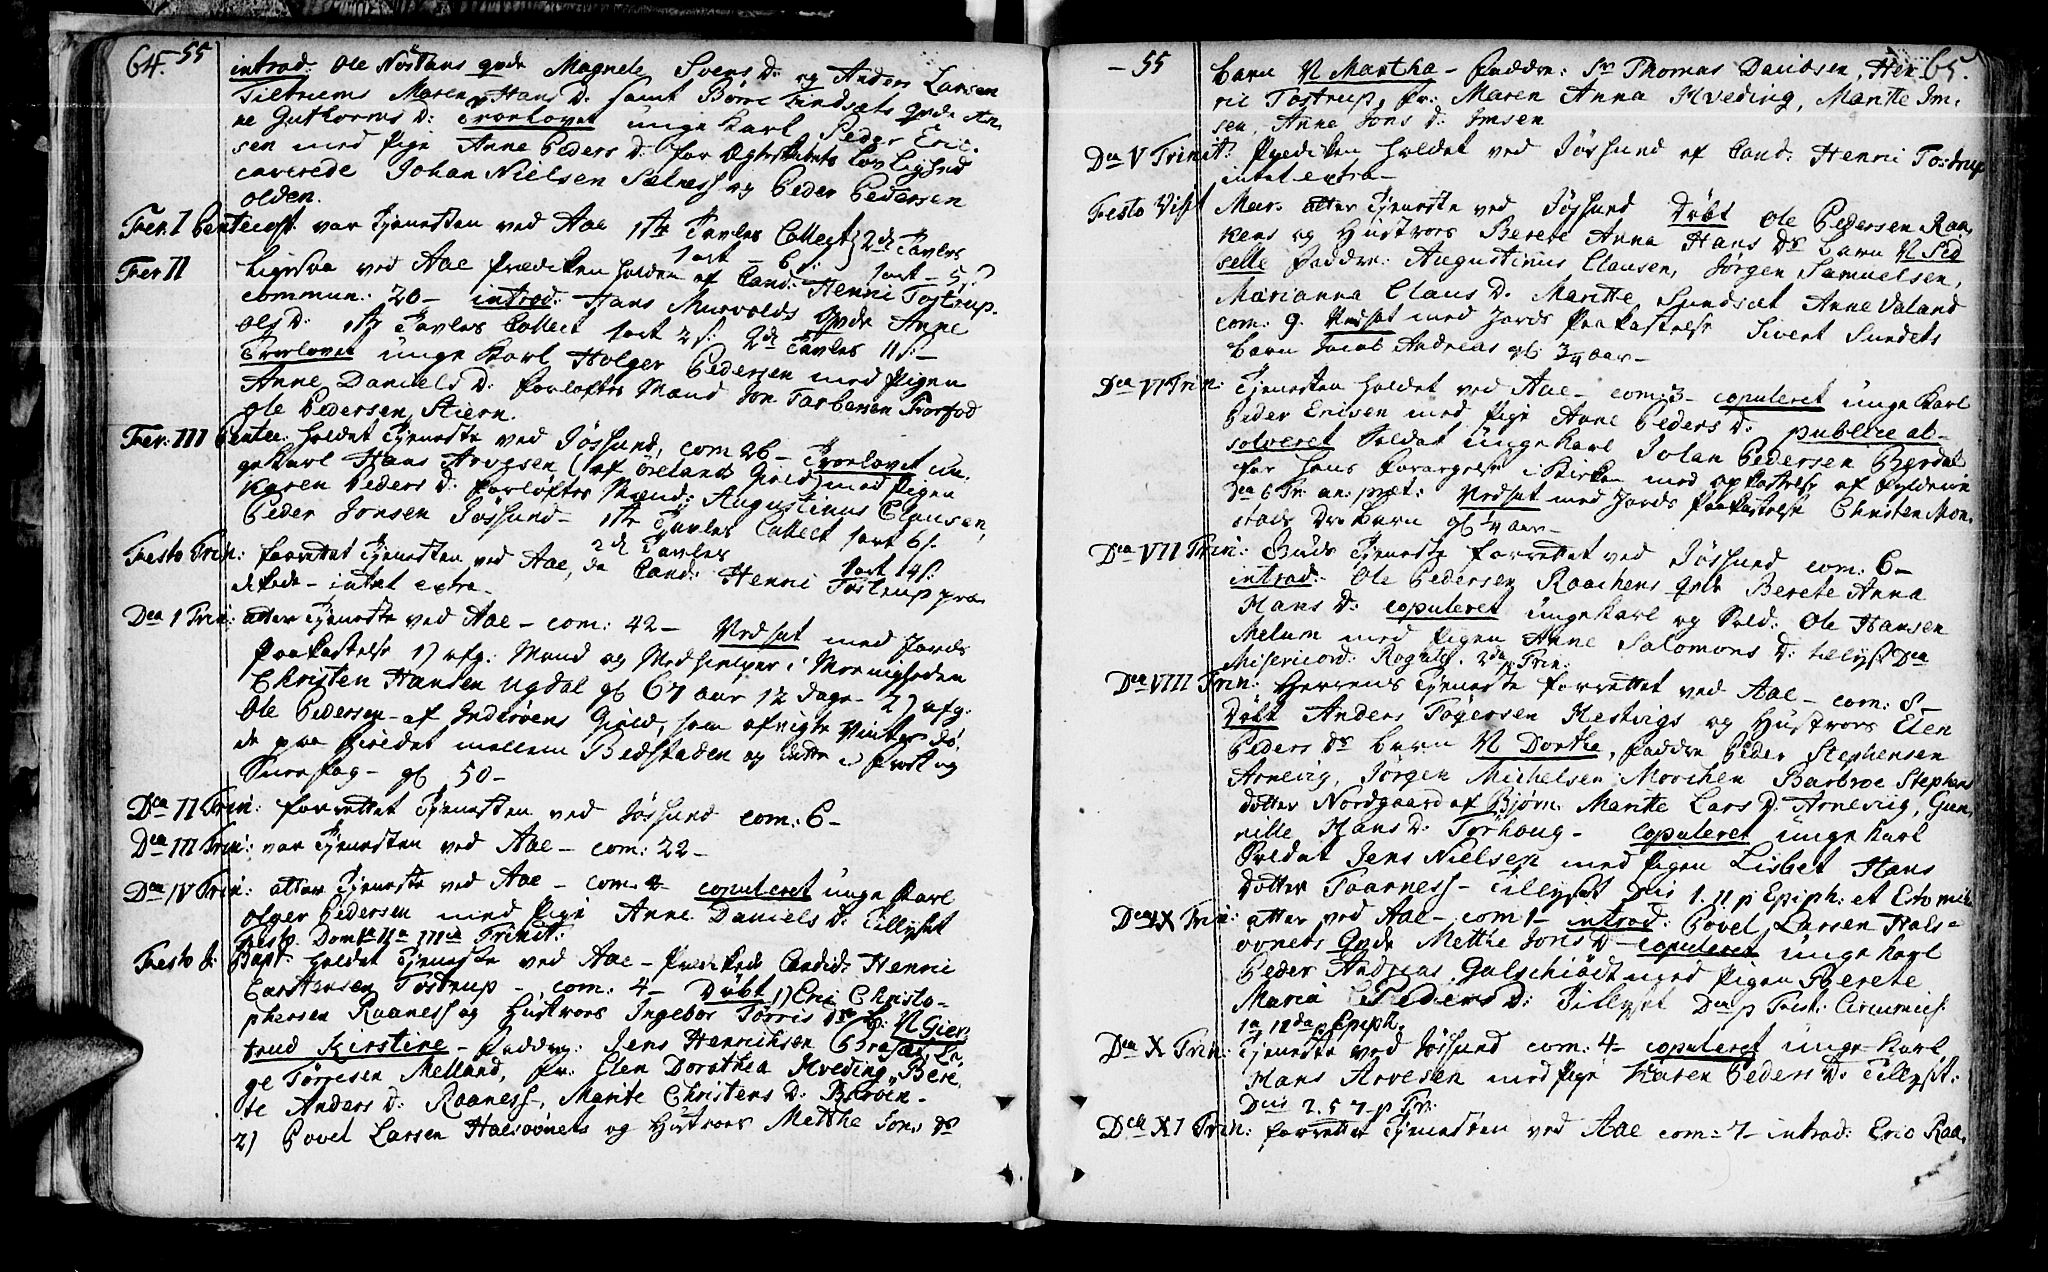 64. 55
introd: Ole Nøstans qvde Magnele Svens D. og Anders Larsen
Tiltrems Maren Hans D. samt Børre Findsæts qvde An,
ne Guthorms D: Trorlovet unge Karl Peder Eric.
sen med Pige Anne Peders D. for Egteskabets Lovlighed
caverede Johan Nielsen Selness og Peder Pedersen
olden.
Fer. I Pentecost. var Tienesten ved Aae 1ste Tavles Collect 2de Tavles
1 ort – 6 s. 1 ort – 5 s.
Fer II Ligesaa ved Aae Prædiken holden af Cand: Henric Tostrup.
commun: 20 – introd: Hans Murvolds qvde Anne
Ols D: 1ste Tavles Collect 1 ort 2 s. 2de Tavles 11 s. –
Trorlovet unge Karl Holger Pedersen med Pigen
Anne Daniels D. forlofter Mand Jon Tarbersen
Ole Pedersen Stiern.
Fer. III Pentec: holdet Tieneste ved Jøssund, com 26 – Trorlovet un.
ge Karl Hans Arvesen (af Ørelands Gield) med Pigen
Karen Peders D. forløfter Mænd: Augustinus Clausen,
Peder Jonsen Jøssund – 1ste Tavles Collect 1 ort 6 s.
2de Tavles 1 ort 14 s.
Festo Trin: forrettet Tienesten ved Aae, da Cand: Henric Tostrup præ
dikede – intet extra –
Dca I Trin: atter Tieneste ved Aae – com: 42 – Nedsat med Jords
Paakastelse 1) afg: Mand og Medhielper i Meenigheden
Christen Hansen Ugdal gl 67 aar 12 dage – 2) afg.
Ole Pedersen – af Inderøens Gield, som afvigte Vinter dø,
de paa Fieldet mellem Bedstaden og dette i frost og
Sneefog – gl 50 –
Dca II Trin: forrettet Tienesten ved Jøssund com: 6 –
Dca III Trin: var Tienesten ved Aae – com: 22 –
Dca IV Trin: atter Tieneste ved Aae – com. 2 – copuleret unge Karl
olger Pedersen med Pige Anne Daniels D: Tillyst
Festo. Dom Ia IIa IIIia Trinit:
Festo J: Bapt holdet Tieneste ved Aae – Prædikede Candid: Henric
Carstensen Tostrup – com: 4 – Døbt 1) Eric Christo –
phersen Raaness og Hustrues Ingebor Torris D B: N Gier
trud Kirstine – Faddre: Jens Henrichsen
ge Torresen Melland, Fr. Elen Dorothea Hveding, Bere
te Anders D: Raaness, Marite Christens D: Barøen –
2) Povel Larsen Halsøvnets og Hustroes Metthe Jons D
– 55
65.
barn N Martha – Faddre: Sr Thomas Davidsen, Hen
ric Tostrup, Fr: Maren Anna Hveding, Maritte Im,
sen, Anne Jons D: Imsen
Dca V Trinit: Prediken holdet ved Jøssund af Cand: Henric Tostrup
intet extra –
Festo Visit Mar. atter Tieneste ved Jøssund Døbt Ole Pedersen Raa,
kens og Hustroes Berete Anna Hans D barn N Sed
selle Faddre: Augustinus Clausen, Jørgen Samuelsen,
Marianna Claus D. Maritte Sundsæt Anne Valand
com: 9. Nedsat med Jords Paakastelse Sivert Sundets
barn Jacob Andreas gl: 3/4 aar –
Dca VI Trin: Tienesten holdet ved Aae – com: 3 – copuleret unge Karl
Peder Ericsen med Pige Anne Peders D. publice ab –
solveret Soldat unge Karl Johan Pedersen Berdal
for hans forargelse i Kirken med opkastelse af
Dca 6 Tr: an: præt: Nedsat med Jords Paakastelse Christen Mon,
stads D barn gl 1/4 aar –
Dca VII Trin: Guds Tieneste forrettet ved Jøssund com: 6 –
introd: Ole Pedersen Raachens qvde Berete Anna
Hans D: copuleret unge Karl og Sold: Ole Hansen
Melum med Pigen Anne Salomons D: tillyst Dca
Misericord: Rogate. 2da Trin:
Dca VIII Trin: Herrens Tieneste forrettet ved Aae – com: 8 –
Døbt Anders Togersen Hestvigs og Hustroes Elen
Peders D barn N Dorthe, Faddre Peder Stephensen
Arnevig, Jørgen Michelsen Moochen Barbroe Stephens
dotter Nordgaard af Bjørn. Maritte Lars D: Arnevig, Gun,
nille Hans D: Torhoug – Copuleret unge Karl
Soldat Jens Nielsen med Pigen Lisbet Hans
dotter Taarness – Tillyst Dnis 1. 11 p Epiph: et Estomihi
Dca IX Trin: atter ved Aae – com 1 – introd: Povel Larsen Hals –
øvnets Qvde Metthe Jons D – copuleret unge Karl
Peder Andreas Gulschiødt med Pigen Berete
Maria Peders D: Tillyst Dca p Fest: Circumcis.
1a, 11da p Epiph.
Dca X Trin: Tieneste ved Jøssund com: 4 – copuleret unge Karl
Hans Arvesen med Pige Karen Peders D. Tillyst:
Dnis 2. 5 7 p Tr:
Dca XI Trin: forrettet Tienesten ved Aae com: 7 – introd: Eric Raa,